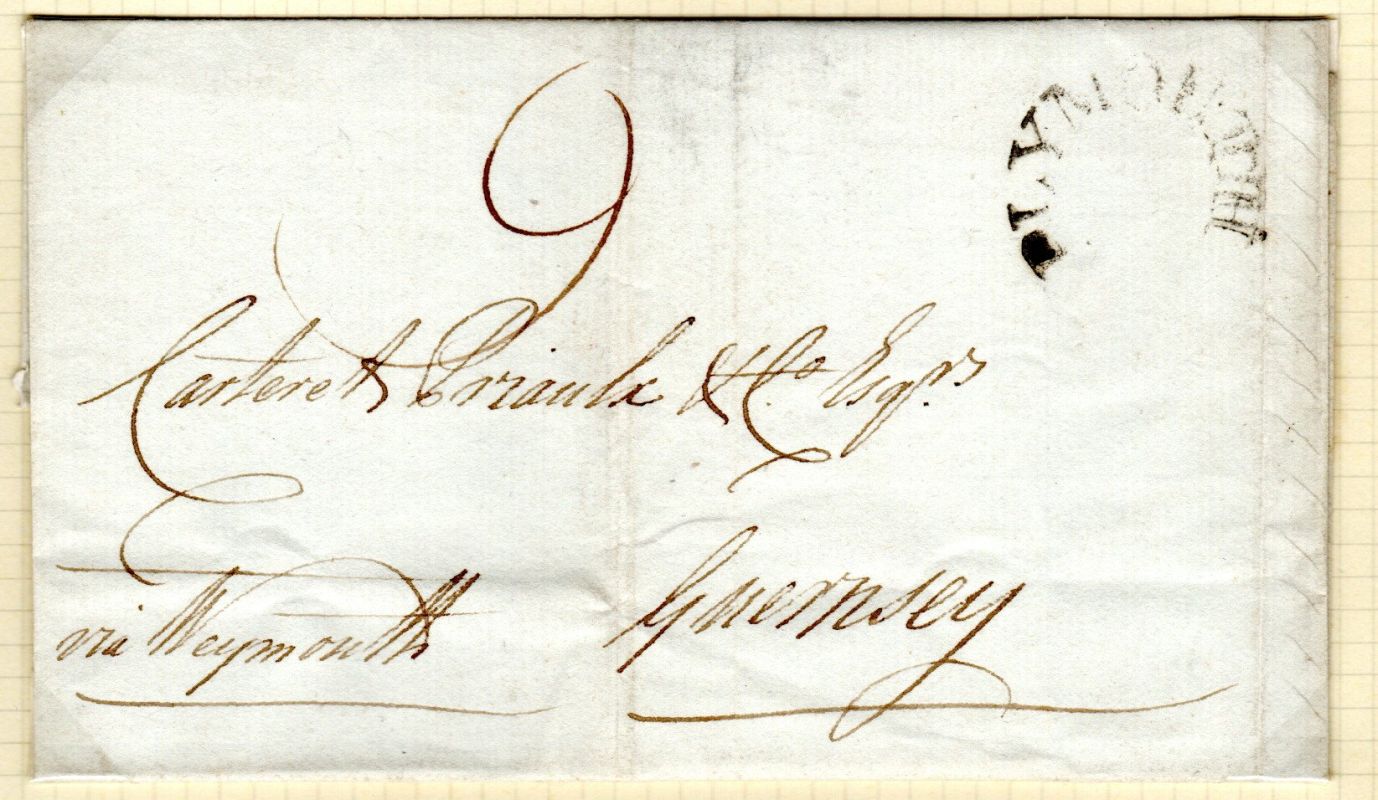 PLYMOUTH
9
Carteret Priaulx & Co. Esqrs
Guernsey
via Weymouth